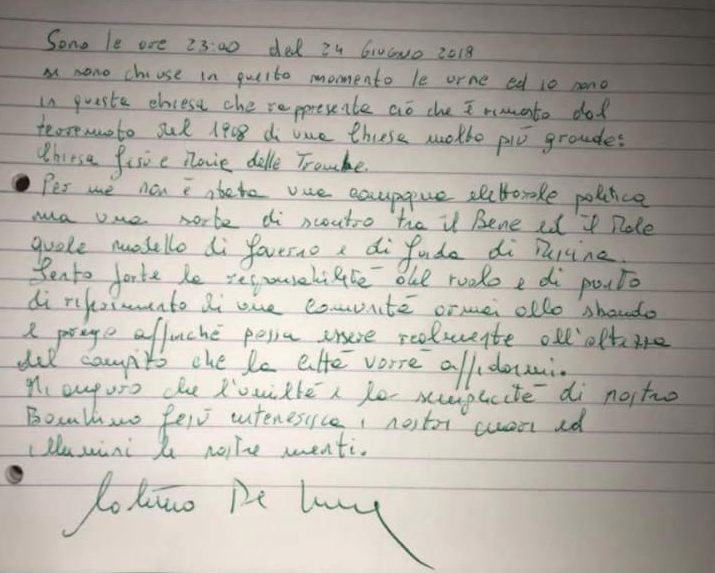 Sono le ore 23:00 del 24 Giugno 2018
si sono chiuse in questo momento le urne ed io sono
in questa chiesa che rappresenta ciò che è rimasto dal
terremoto del 1908 di una Chiesa molto più grande:
Chiesa Gesù e Maria delle Trombe.
Per me non è stata una campagna elettorale politica
ma una sorta di scontro tra il Bene ed il Male
quale modello di Governo e di guida di Messina.
Sento forte la responsabilità del ruolo e di punto
di riferimento di una Comunità ormai allo sbando
e prego affinché possa essere realmente all'altezza
del compito che la città vorrà affidarmi.
Mi auguro che l'umiltà e la semplicità di nostro
Bambino Gesù intenerisca i nostri cuori ed
illumini le nostre menti.
Cateno De Luca